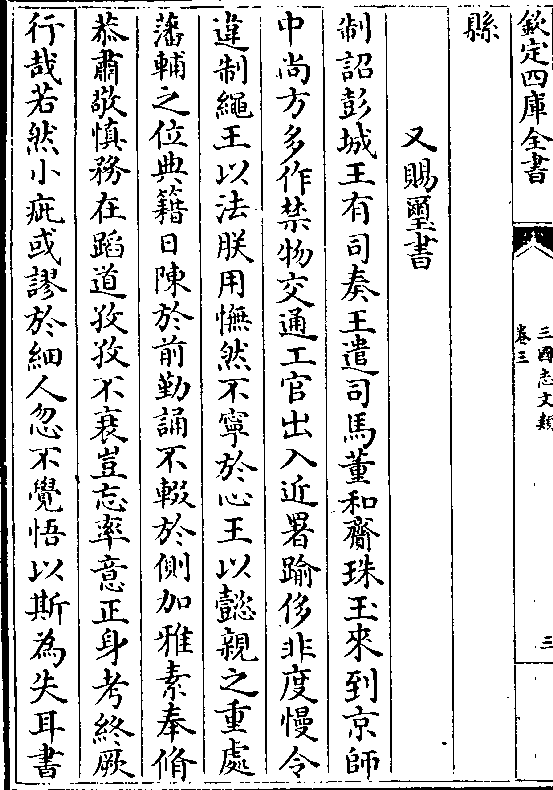 欽定四庫全書
三國志文類
卷三
三
縣
又賜璽書
制詔彭城王有司奏王遣司馬董和齎珠玉來到京師
中尚方多作禁物交通工官出入近署踰侈非度慢令
違制繩王以法朕用憮然不寧於心王以懿親之重處
藩輔之位典籍日陳於前勤誦不輟於側加雅素奉脩
恭肅敬慎務在蹈道孜孜不衰豈忘率意正身考終厥
行哉若然小疵或謬於細人忽不覺悟以斯為失耳書